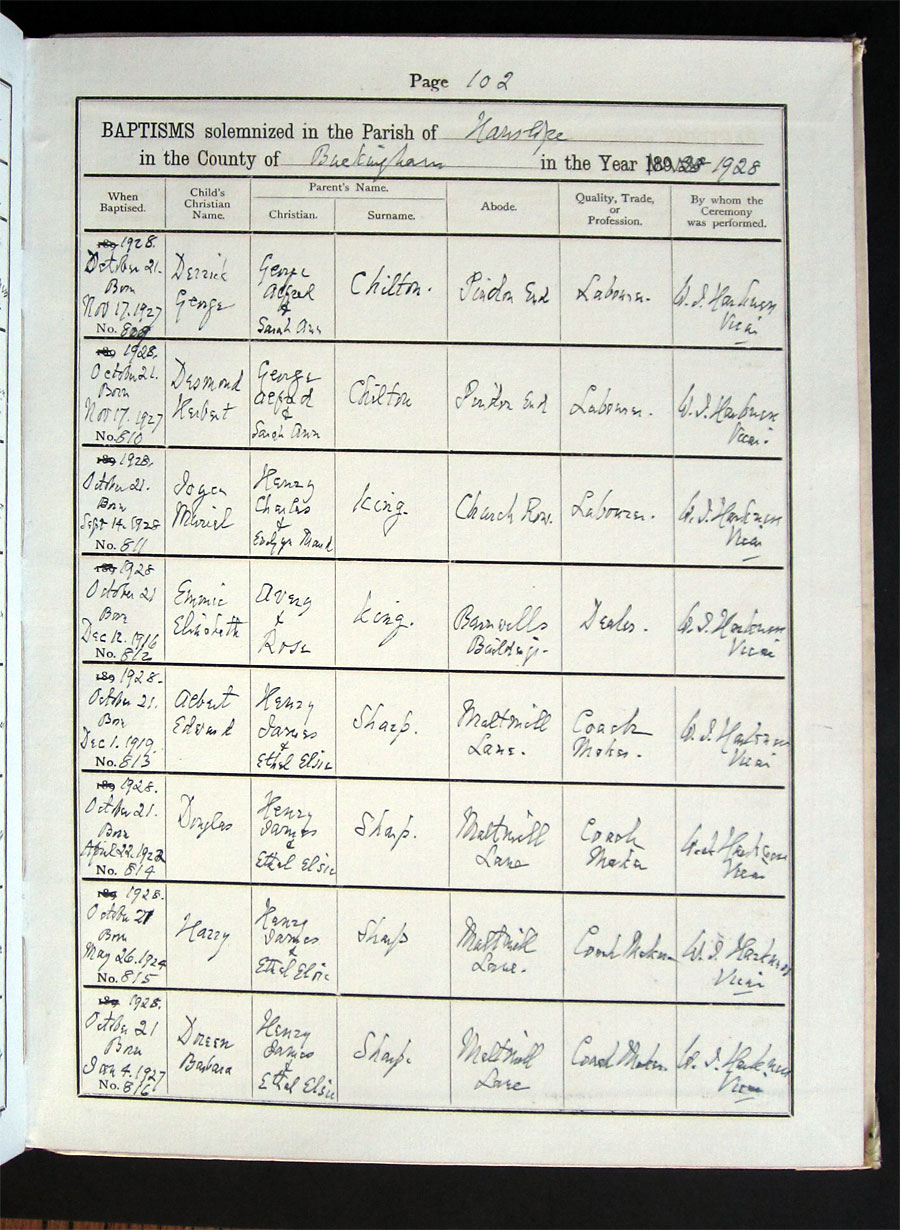 Page 102
BAPTISMS solemnized in the Parish of Hanslope
in the County of Buckingham in the Year 189 1928
When Baptised.
Child's Christian Name.
Parent's Name.
Christian.
Surname.
Abode.
Quality, Trade, or Profession.
By whom the Ceremony was performed.
189 1928.
October 21.
Born
Nov 17. 1927
No. 809
Derrick
George
George
Alfred
&
Sarah Ann
Chilton.
Pindon End
Labourer.
W. J. Harkness
Vicar
189 1928.
October 21.
Born
Nov 17. 1927
No. 810
Desmond
Herbert
George
Alfred
&
Sarah Ann
Chilton
Pindon End
Labourer.
W. J. Harkness
Vicar.
189 1928.
October 21.
Born
Sept 14. 1928
No. 811
Joyce
Muriel
Henry
Charles
&
Evelyn Maud
King.
Church Row.
Labourer.
W. J. Harkness
Vicar
189 1928
October 21
Born
Dec 12. 1916
No. 812
Emmie
Elizabeth
Avery
&
Rose
King.
Barnwells
Buildings.
Dealer.
W. J. Harkness
Vicar
189 1928.
October 21.
Born
Dec 1. 1919.
No. 813
Albert
Edward
Henry
James
&
Ethel Elsie
Sharp.
Maltmill
Lane.
Coach
Maker.
W. J. Harkness
Vicar
189 1928.
October 21.
Born
April 22. 1922
No. 814
Douglas
Henry
James
&
Ethel Elsie
Sharp.
Maltmill
Lane
Coach
Maker
W. J. Harkness
Vicar
189 1928.
October 21
Born
May 26. 1924
No. 815
Harry
Henry
James
&
Ethel Elsie
Sharp
Maltmill
Lane.
Coach Maker
W. J. Harkness
Vicar
189 1928.
October 21
Born
Jan 4. 1927
No. 816
Doreen
Barbara
Henry
James
&
Ethel Elsie
Sharp.
Maltmill
Lane
Coach Maker.
W. J. Harkness
Vicar